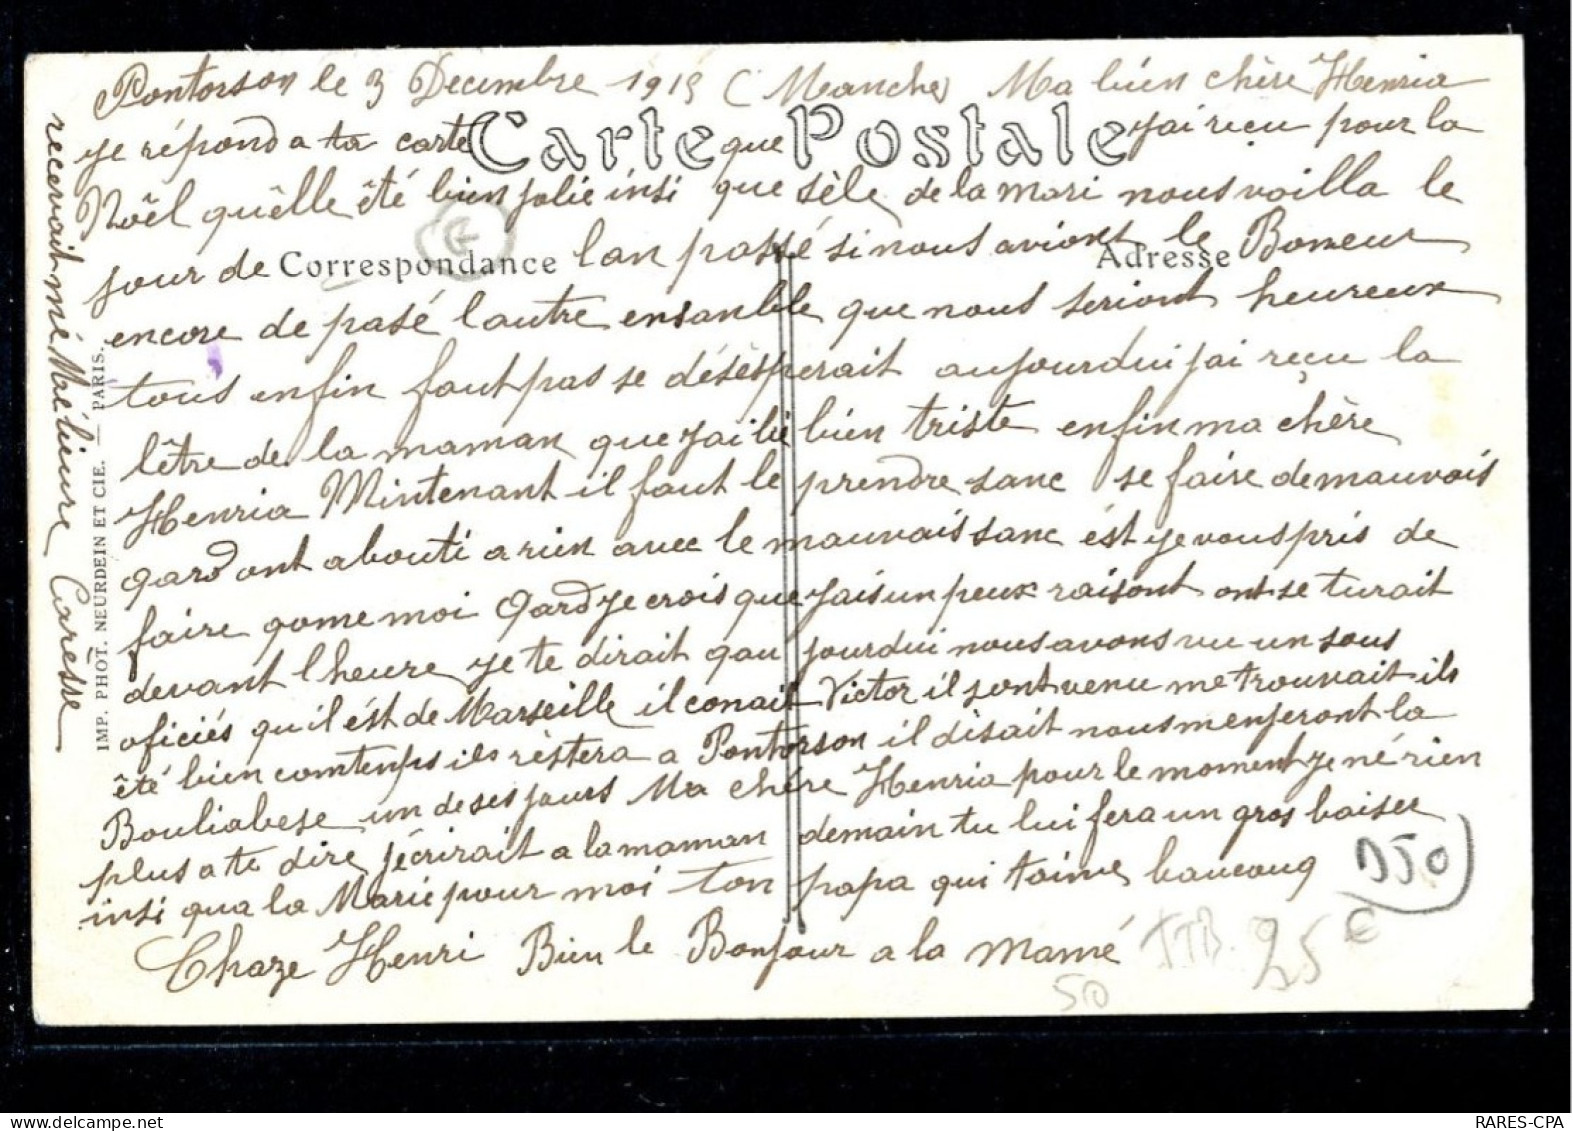 Pontorson le 3 Decembre 1915 (Manche) Ma bien chère Henria
Carte Postale
je répond a ta carte que j'ai reçu pour la
Nöêl quêlle êté bien jolie insi que sèle de la mari nous voilla le
jour de lan passé si nous avions le Boneur
Correspondance Adresse
encore de pasé lautre ensanble que nous seriont heureux
tous enfin faut pas se désèsperait aujourdui jai reçu la
lêtre de la maman que jai lu bien triste enfin ma chère
Henria Mintenant il faut le prendre sanc se faire de mauvais
gard ont abouti a rien avec le mauvais sanc ést je vous pris de
faire qome moi gard je crois que jais un peux raisont ont se turait
devant l heure je te dirait qau jourdui nous avons vu un sous
oficiés qu'il ést de Marseille il conait Victor il sont venu me trouvait ils
êté bien comtemps ils rèstera a Pontorson il disait nous menjeront la
Bouliabese un de ses jours Ma chére Henria pour le moment je né rien
plus a te dire j'écrirait a la maman demain tu lui fera un gros baiser
insi qua la Marie pour moi ton papa qui taime baucoug
Chaze Henri Bien le Bonjour a la Mamé
recevait mé Mélieure Caresse
IMP. PHOT. NEURDEIN ET CIE. — PARIS.
DJ0
TTB. 25 €
50
RARES-CPA